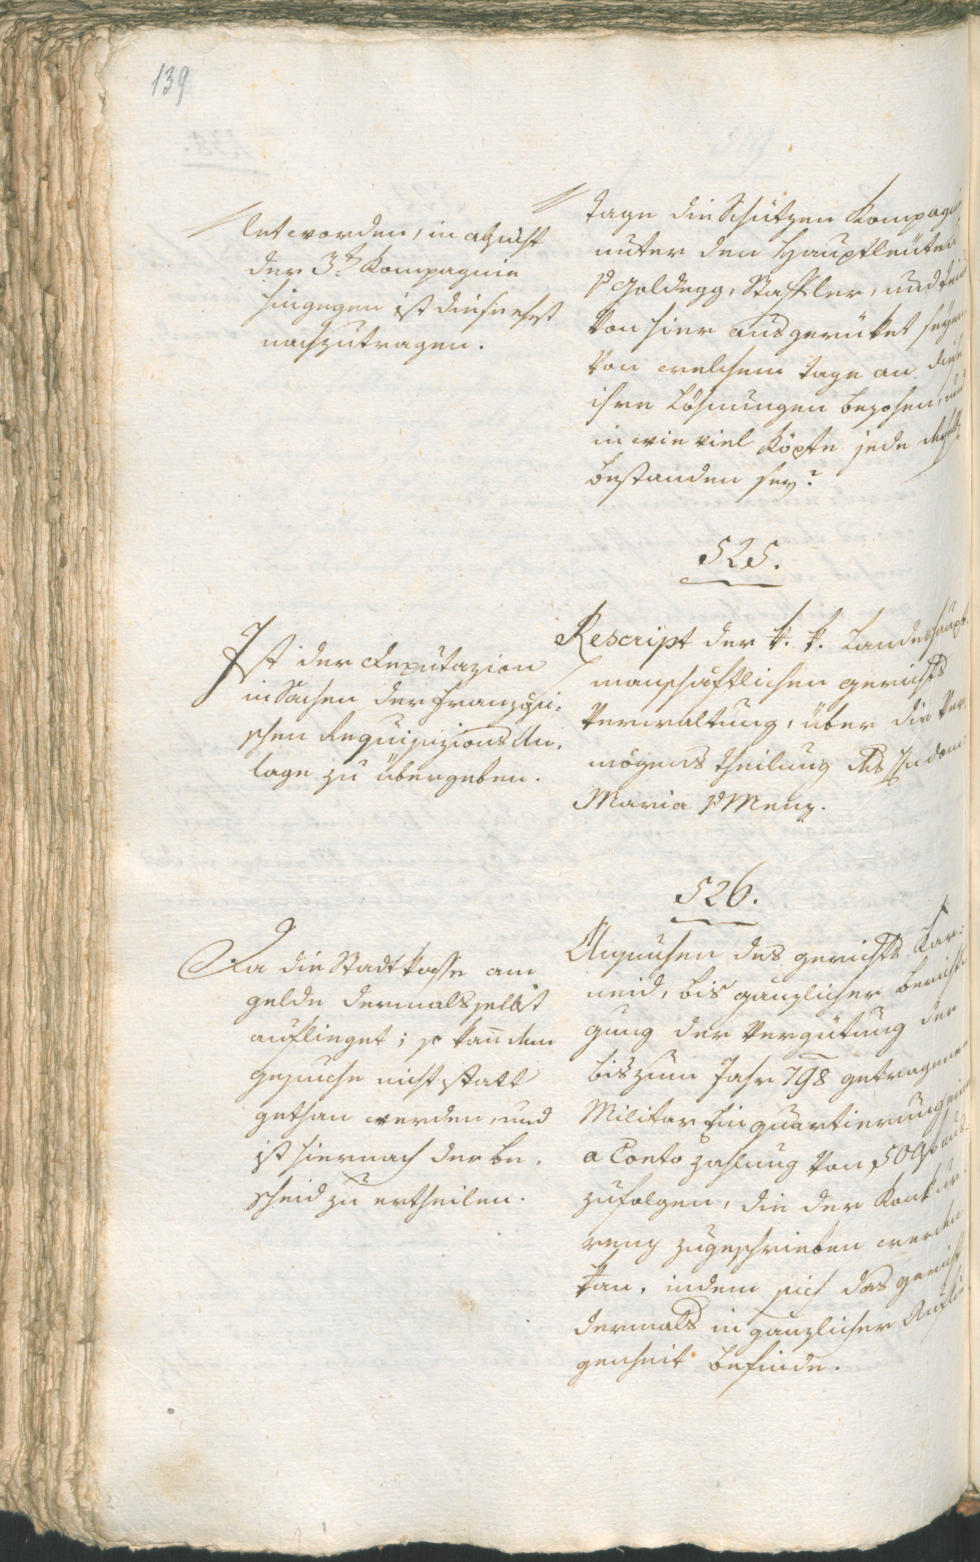 139
let worden, in absicht
der 3t. Kompagnie
hingegen ist dieses erst
nachzutragen.
tage die Schützen Kompagni
unter den Hauptleuten
v Goldegg, Stafler, und
von hier ausgerüket seyen
von welchem tage an diese
ihre Löhnungen bezohen, und
in wie viel Köpfe jede
bestanden sey?
525.
Ist der Deputazion
in Sachen der französi,
schen Requisizions An,
lage zu übergeben.
Rescript der k. k. Landeshaupt
manschaftlichen gerichts
Verwaltung, über die Ver
mögens theilung des
Maria v Menz.
526.
Da die Stadtkasse am
gelde dermals selbst
aufliegt; so kan dem
gesuche nicht statt
gethan werden, und
ist hiernach der Be,
scheid zu ertheilen.
Ansuchen des gerichts Kar,
neid, bis gänzlicher berichti
gung der Vergütung der
bis zum Jahr 798 getragenen
Militar Einquartierung eine
a Conto zahlung von 500f aus
zufolgen, die der Konkur
renz zugeschrieben werden
kan, indem sich das gericht
dermals in gänzlicher Auflie
genheit befinde.